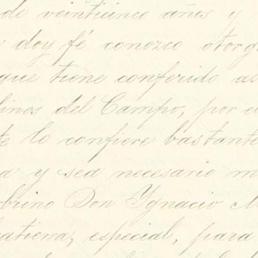 de veinticinco años y
doy fé conozco otorg
que tiene conferido as
linos del Campo, por e
te lo confiere bastante
a y sea necesario m
brino Don Ygnacio M
atiena, especial, para